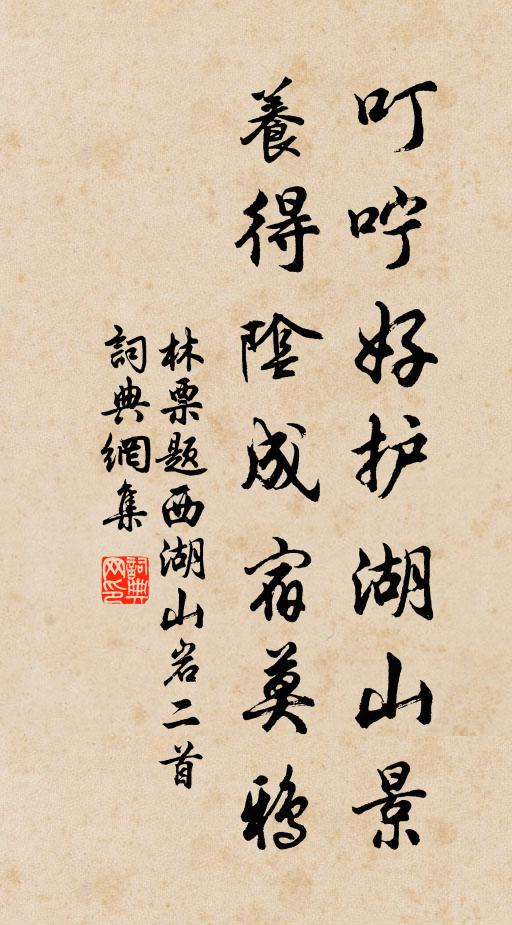 叮咛好护湖山景
養得陰成宿莫鴉
林票题西湖山岩二首
詞典網集
詞典网印